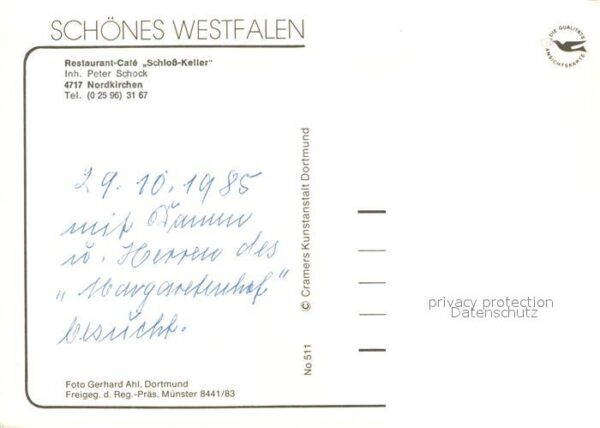 SCHÖNES WESTFALEN
Restaurant-Café „Schloß-Keller"
Inh. Peter Schock
4717 Nordkirchen
Tel. (0 25 96) 31 67
DIE QUALITÄTS
ANSICHTSKARTE
29.10.1985
mit Damen
u. Herren des
„Margaretenhof"
besucht.
© Cramers Kunstanstalt Dortmund
No 511
privacy protection
Datenschutz
Foto Gerhard Ahl, Dortmund
Freigeg. d. Reg.-Präs. Münster 8441/83